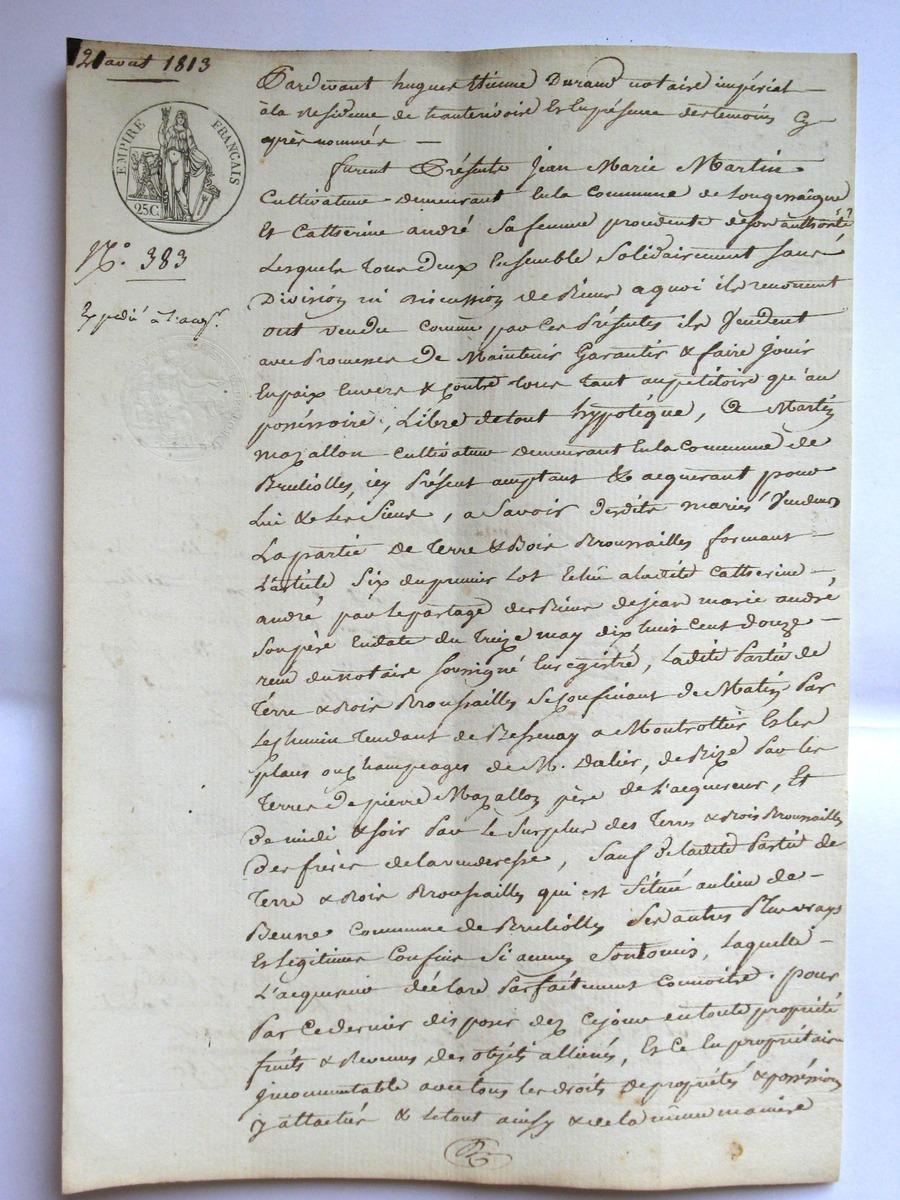 2 aout 1813
EMPIRE FRANÇAIS
25C.
N.° 383
Expedié à l'acq.r
Pardevant hugues Etienne Durand notaire impérial
à la Residence de hauterivoire Et En présence des temoins Cy
après nommés
furent Présents Jean Marie Martin
Cultivateur demeurant En la Commune de Longessaigne
Et Catherine andré Sa femme procedente de son authorité
Lesquels Tous deux Ensemble Solidairement Sans
Division ni discussion de Biens a quoi ils renoncent
ont vendu comme par ces Présentes ils Vendent
avec Promesses de Maintenir Garantir & faire Jouir
En paix Envers & Contre tous tant au petitoire qu'au
posséssoire, Libre de tout hypotéque, à Martin
mazallon Cultivateur demeurant En la Commune de
Brullioles, icy Présent acceptant & acquerant pour
Lui & les Siens, a Savoir desdits mariés Vendeurs
La partie de Terre & Bois Broussailles formant
L'article Six du premier Lot Echu a ladite Catherine
andré par le partage des Biens de jean marie andré
Son père En date du Treize may dix huit Cent douze
recu du notaire Soussigné Enregistré, Ladite Partie de
Terre & Bois Broussailles Se Confinant de Matin Par
Le chemin Tendant de Bessenay a Montrottier Et les
plans ou Champeages de M. Dalier, de Bize Par les
Terres de pierre Mazallon père de L'acquereur, Et
de midi & Soir Par Le Surplus des Terres & Bois Broussailles
Des frères de la venderesse, Sauf de ladite Partie de
Terre & Bois Broussailles qui est Située au lieu de
Beune Commune de Brullioles Ses autres Plus vrays
Et Légitimes Confins Si aucuns Sont omis, Laquelle
L'acquereur déclare Parfaitement Connoitre. pour
Par Ce dernier disposer dez Ce jour en toute propriété
fruits & Revenus des objets alliénés, Et Ce En propriétaire
incommutable avec tous les droits de propriétés & posséssion
y attachés & le tout ainssy & de la même maniere